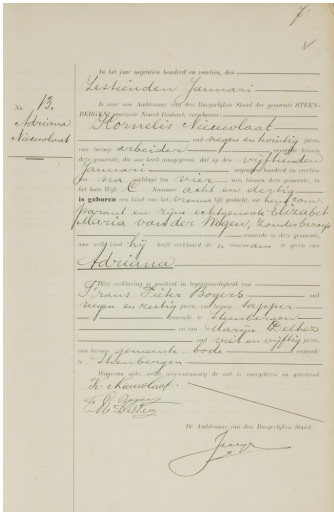 No. 13.
Adriana
Nieuwlaat
In het jaar negentien honderd en veertien, den
Zestienden Januari
is voor ons Ambtenaar van den Burgerlijken Stand der gemeente STEEN-
BERGEN, provincie Noord-Brabant, verschenen:
Kornelis Nieuwlaat
oud negen en twintig jaren,
van beroep arbeider wonende binnen
deze gemeente, die ons heeft aangegeven, dat op den vijftienden
Januari negentien honderd en veertien
des na middags ten vier ure, binnen deze gemeente, in
het huis Wijk C Nummer acht en dertig
is geboren een kind van het vrouwelijk geslacht, uit hem com-
parant en zijne echtgenoote Elizabet
Maria van der Wegen, zonder beroep
wonende in deze gemeente,
aan welk kind hij heeft verklaard de voornaam te geven van
Adriana
Deze verklaring is geschied in tegenwoordigheid van
Frans Pieter Bogers oud
negen en zestig jaren, van beroep tapper
wonende te Steenbergen
en van Marijn
oud vier en vijftig jaren,
van beroep gemeente-bode wonende
te Steenbergen
Waarvan akte, welke overeenkomstig de wet is voorgelezen en geteekend
K. Nieuwlaat
De Ambtenaar van den Burgerlijken Stand,